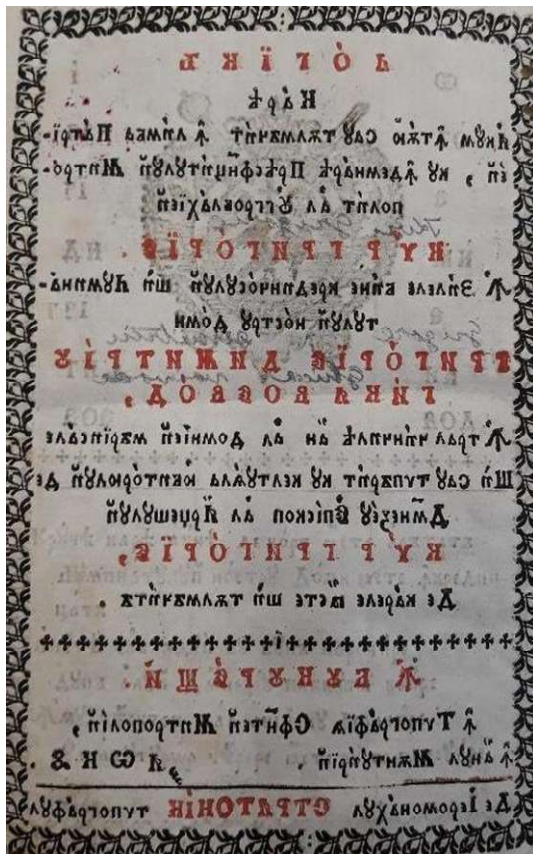 ЛО́ГЇКА
Ка́рѣ
А́кум ꙟ҆тѫю сау тѫлмъчи́т ꙟ҆ ли́мба Патрї́-
ей, ку ꙟ҆демна́рѣ Прѣсфи҃нци́тулуй Митро-
поли́т а́л Ѹггровла́хїей
КѴ́Р ГРИГО́РЇЕ.
Ꙟ Зи́леле би́не креди́нчо́сулуй ши́ Лумина́-
тулуй но́стру До́мн
ГРИГО́РЇЕ ДИМИТРІ́Ꙋ
ГИ́КА ВОЕВО́Д,
Ꙟ трал чи́нчилѣ а́н а́л Домнїей мъри́їсале
Ши́ сау типъри́т ку келтуа́ла юбито́рюлуй де
Дмнезе́у Епі́скоп ал А́рџешулуй
КѴ́Р ГРИГО́РЇЕ,
Де ка́реле ꙗ́сте ши́ тѫлмъчи́тъ.
Ꙟ БУКУРЕ́ЩЙ.
ꙟ҆ Тѵпогра́фїѧ Сфи҃нтей Митрополі́й,
ꙟ҆ а́нул Мѫнтуи́рїй. ҂А Ѡ К Ѕ.
Де Іеромона́хул СТРАТОНІ́К типогра́фул